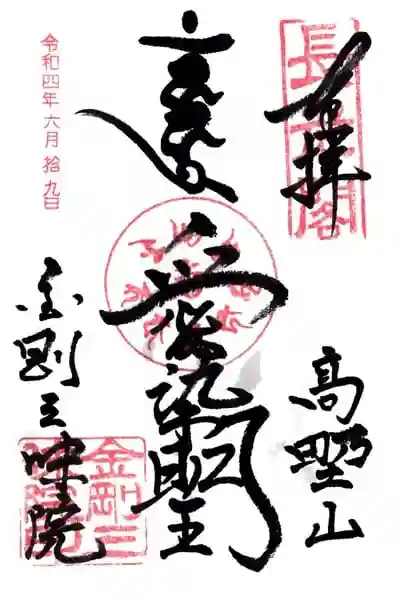 奉拝
長老閣
高野山
愛染明王
令和四年六月拾九日
金剛三味院
金剛三
昧院